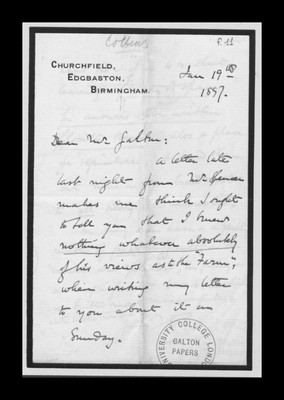 Collins
F. 11
CHURCHFIELD,
EDGBASTON,
BIRMINGHAM.
Jan 19th
1897.
Dear Mr Galton:
a letter late
last night from Mr Spencer
makes me think I right
to tell you that I knew
nothing whatever absolutely
of his views as to the "Farm",
when writing my letter
to you about it on
Sunday.
UNIVERSITY COLLEGE LONDON
GALTON
PAPERS